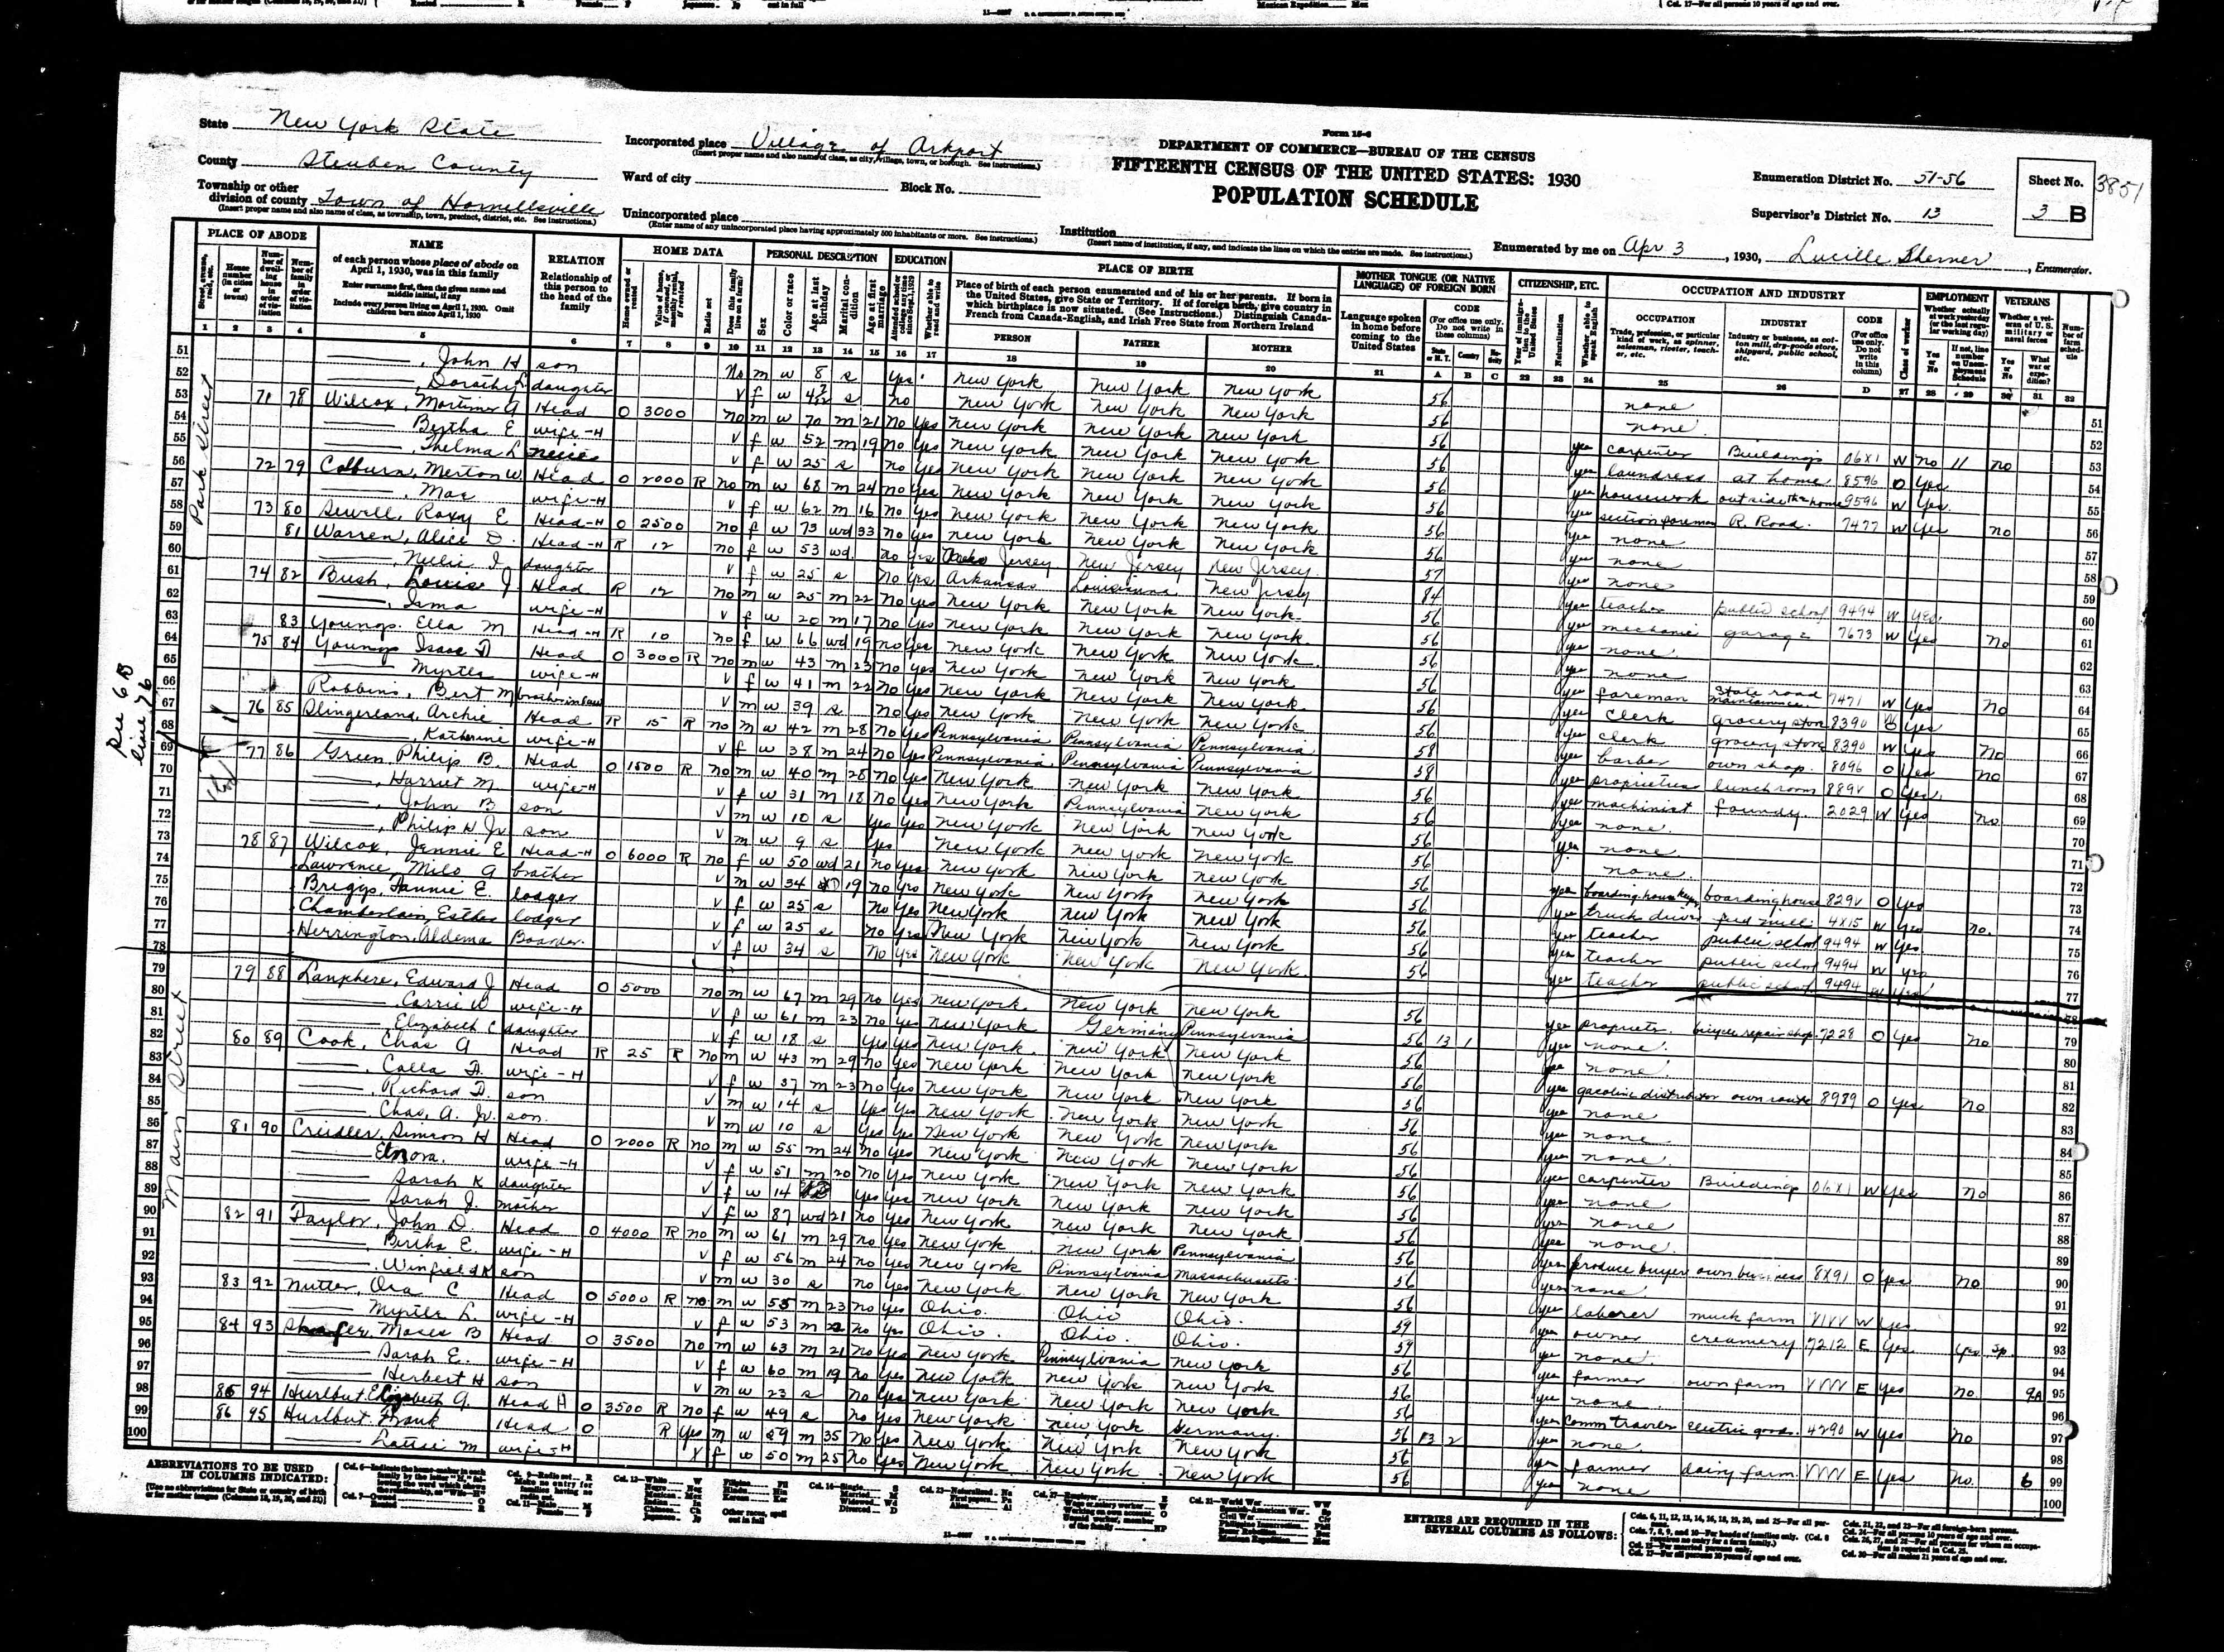 State New York State
County Steuben County
Township or other division of county Town of Hornellsville
(Insert proper name and also name of class, as township, town, precinct, district, etc. See instructions.)
Incorporated place Village of Arkport
(Insert proper name and also name of class, as city, village, town, or borough. See instructions.)
Ward of city
Block No.
Unincorporated place
(Enter name of any unincorporated place having approximately 500 inhabitants or more. See instructions.)
Form 15-6
DEPARTMENT OF COMMERCE—BUREAU OF THE CENSUS
FIFTEENTH CENSUS OF THE UNITED STATES: 1930
POPULATION SCHEDULE
Institution
(Insert name of institution, if any, and indicate the lines on which the entries are made. See instructions.)
Enumeration District No. 51-56
Supervisor's District No. 13
Sheet No. 3 B
3851
Enumerated by me on Apr 3, 1930, Lucille , Enumerator.
PLACE OF ABODE
NAME
of each person whose place of abode on April 1, 1930, was in this family
Enter surname first, then the given name and middle initial, if any
Include every person living on April 1, 1930. Omit children born since April 1, 1930
RELATION
Relationship of this person to the head of the family
HOME DATA
PERSONAL DESCRIPTION
EDUCATION
PLACE OF BIRTH
Place of birth of each person enumerated and of his or her parents. If born in the United States, give State or Territory. If of foreign birth, give country in which birthplace is now situated. (See Instructions.) Distinguish Canada-French from Canada-English, and Irish Free State from Northern Ireland
PERSON FATHER MOTHER
MOTHER TONGUE (OR NATIVE LANGUAGE) OF FOREIGN BORN
Language spoken in home before coming to the United States
CODE
CITIZENSHIP, ETC.
OCCUPATION AND INDUSTRY
OCCUPATION INDUSTRY CODE
EMPLOYMENT
VETERANS
Park Street
51 John H son No m w 8 s yes New York New York New York 56 none
52 daughter f w s no New York New York New York 56 none
53 71 78 Wilcox, Mortimer A Head O 3000 no m w 70 m 21 no yes New York New York New York 56 yes carpenter Buildings 06X1 W no 11 no
54 Bertha E wife-H f w 52 m 19 no yes New York New York New York 56 yes laundress at home 8596 O yes
55 Thelma L neice f w 25 s no yes New York New York New York 56 yes housework outside the home 9596 W yes
56 72 79 Colburn, Merton W Head O 2000 R no m w 68 m 24 no yes New York New York New York 56 yes section foreman R. Road 7477 W yes no
57 Mae wife-H f w 62 m 16 no yes New York New York New York 56 yes none
58 73 80 Sewell, Roxy E Head-H O 2500 no f w 73 wd 33 no yes New York New York New York 56 yes none
59 81 Warren, Alice D. Head-H R 12 no f w 53 wd no yes Jersey New Jersey New Jersey 57 yes none
60 Nellie I daughter f w 25 s no yes Arkansas Louisiana New Jersey 84 yes teacher public school 9494 W yes
61 74 82 Bush, Louis J Head R 12 no m w 25 m 22 no yes New York New York New York 56 yes mechanic garage 7673 W yes no
62 Isma wife-H f w 20 m 17 no yes New York New York New York 56 yes none
63 83 Youngs Ella M Head-H R 10 no f w 66 wd 19 no yes New York New York New York 56 yes none
64 75 84 Youngs Isaac D Head O 3000 R no m w 43 m 23 no yes New York New York New York 56 yes foreman state road maintainance 7471 W yes no
65 Myrtle wife-H f w 41 m 22 no yes New York New York New York 56 yes clerk grocery store 8390 O yes
66 Robbins, Bert M brother in law m w 39 s no yes New York New York New York 56 yes clerk grocery store 8390 W yes no
67 76 85 Slingerland, Archie Head R 15 R no m w 42 m 28 no yes Pennsylvania Pennsylvania Pennsylvania 58 yes barber own shop 8096 O yes no
68 Katherine wife-H f w 38 m 24 no yes Pennsylvania Pennsylvania Pennsylvania 58 yes proprietor lunch room 889V O yes
69 77 86 Green, Philip B. Head O 1500 R no m w 40 m 28 no yes New York New York New York 56 yes machinist foundry 2029 W yes no
70 Harriet M wife-H f w 31 m 18 no yes New York Pennsylvania New York 56 yes none
71 John B son m w 10 s yes yes New York New York New York 56 yes none
72 Philip H Jr son m w 9 s yes New York New York New York 56 none
73 78 87 Wilcox, Jennie E Head-H O 6000 R no f w 50 wd 21 no yes New York New York New York 56 yes boardinghouse boardinghouse 829V O yes
74 Lawrence, Milo A brother m w 34 19 no yes New York New York New York 56 yes truck driver feed mill 4X15 W yes no
75 Briggs, Fannie E. lodger f w 25 s no yes New York New York New York 56 yes teacher public school 9494 W yes
76 Chamberlain, Esther lodger f w 25 s no yes New York New York New York 56 yes teacher public school 9494 W yes
77 Herrington, Aldema Boarder f w 34 s no yes New York New York New York 56 yes teacher public school 9494 W yes
78
Main Street
see 6 B line 76
79 79 88 Lanphere, Edward J Head O 5000 no m w 67 m 29 no yes New York New York New York 56 yes proprietor bicycle repair shop 7228 O yes no
80 Carrie W wife-H f w 61 m 23 no yes New York Germany Pennsylvania 56 13 1 yes none
81 Elizabeth C daughter f w 18 s yes yes New York New York New York 56 yes none
82 80 89 Cook, Chas A Head R 25 R no m w 43 m 29 no yes New York New York New York 56 yes gasoline distributor own route 8989 O yes no
83 Calla wife-H f w 37 m 23 no yes New York New York New York 56 yes none
84 Richard D. son m w 14 s yes yes New York New York New York 56 yes none
85 Chas. A. Jr. son m w 10 s yes yes New York New York New York 56 yes none
86 81 90 Creidler, Simron H Head O 2000 R no m w 55 m 24 no yes New York New York New York 56 yes carpenter Buildings 06X1 W yes no
87 Elnora wife-H f w 51 m 20 no yes New York New York New York 56 yes none
88 Sarah K daughter f w 14 yes yes New York New York New York 56 yes none
89 Sarah J. mother f w 87 wd 21 no yes New York New York New York 56 yes none
90 82 91 Taylor, John D. Head O 4000 R no m w 61 m 29 no yes New York New York Pennsylvania 56 yes produce buyer own business 8X91 O yes no
91 Bertha E. wife-H f w 56 m 24 no yes New York Pennsylvania Massachusetts 56 yes none
92 Winfield K son m w 30 s no yes New York New York New York 56 yes laborer muck farm W yes
93 83 92 Nutter, Ora C Head O 5000 R no m w 55 m 23 no yes Ohio Ohio Ohio 59 yes owner creamery 7212 E yes yes Sp.
94 Myrtle L. wife-H f w 53 m no yes Ohio Ohio Ohio 59 yes none
95 84 93 Shafer, Moses B Head O 3500 no m w 63 m 21 no yes New York Pennsylvania New York 56 yes farmer own farm VVVV E yes no 9A
96 Sarah E. wife-H f w 60 m 19 no yes New York New York New York 56 yes none
97 Herbert H son m w 23 s no yes New York New York New York 56 yes comm traveler electric goods 4290 W yes no
98 85 94 Hurlbut, Elizabeth A. Head H O 3500 R no f w 49 s no yes New York New York Germany 56 13 2 yes none
99 86 95 Hurlbut, Frank Head O R yes m w 59 m 35 no yes New York New York New York 56 yes farmer dairy farm VVVV E yes no 6
100 M wife-H f w 50 m 25 no yes New York New York New York 56 yes none
ABBREVIATIONS TO BE USED IN COLUMNS INDICATED:
ENTRIES ARE REQUIRED IN THE SEVERAL COLUMNS AS FOLLOWS: